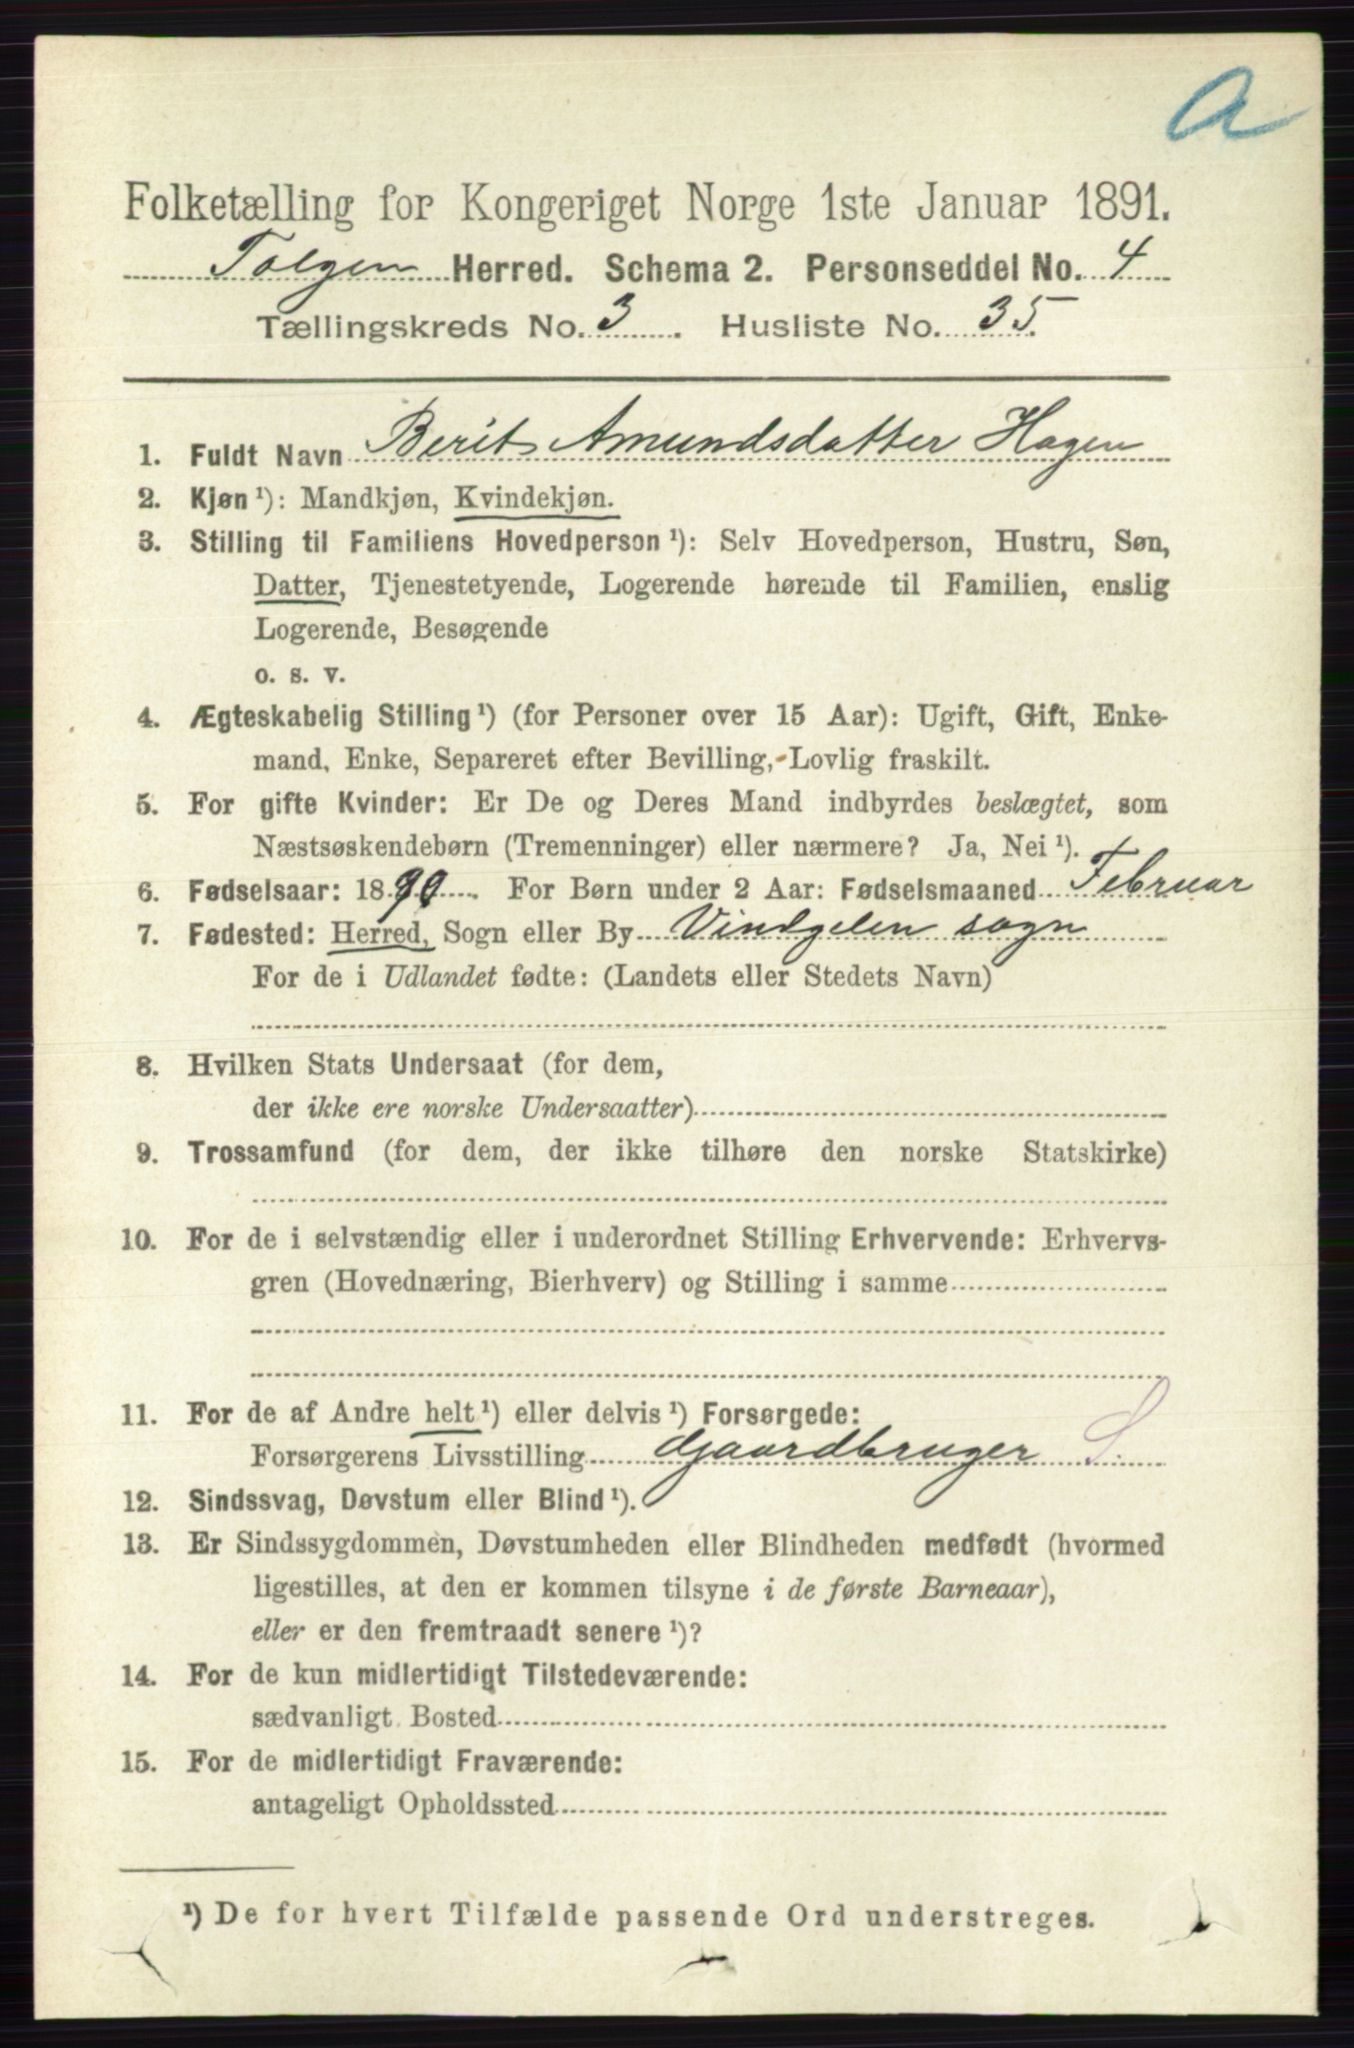 a
Folketælling for Kongeriget Norge 1ste Januar 1891.
Tolgen Herred. Schema 2. Personseddel No. 4
Tællingskreds No. 3. Husliste No. 35.
1. Fuldt Navn Berit Amundsdatter Hagen
2. Kjøn ¹): Mandkjøn, Kvindekjøn.
3. Stilling til Familiens Hovedperson ¹): Selv Hovedperson, Hustru, Søn,
Datter, Tjenestetyende, Logerende hørende til Familien, enslig
Logerende, Besøgende
o. s. v.
4. Ægteskabelig Stilling ¹) (for Personer over 15 Aar): Ugift, Gift, Enke-
mand, Enke, Separeret efter Bevilling, Lovlig fraskilt.
5. For gifte Kvinder: Er De og Deres Mand indbyrdes beslægtet, som
Næstsøskendebørn (Tremenninger) eller nærmere? Ja, Nei ¹).
6. Fødselsaar: 1890. For Børn under 2 Aar: Fødselsmaaned Februar
7. Fødested: Herred, Sogn eller By Vindgelen sogn
For de i Udlandet fødte: (Landets eller Stedets Navn)
8. Hvilken Stats Undersaat (for dem,
der ikke ere norske Undersaatter)
9. Trossamfund (for dem, der ikke tilhøre den norske Statskirke)
10. For de i selvstændig eller i underordnet Stilling Erhvervende: Erhvervs-
gren (Hovednæring, Bierhverv) og Stilling i samme
11. For de af Andre helt ¹) eller delvis ¹) Forsørgede:
Forsørgerens Livsstilling Gaardbruger S.
12. Sindssvag, Døvstum eller Blind ¹).
13. Er Sindssygdommen, Døvstumheden eller Blindheden medfødt (hvormed
ligestilles, at den er kommen tilsyne i de første Barneaar),
eller er den fremtraadt senere ¹)?
14. For de kun midlertidigt Tilstedeværende:
sædvanligt Bosted
15. For de midlertidigt Fraværende:
antageligt Opholdssted
¹) De for hvert Tilfælde passende Ord understreges.